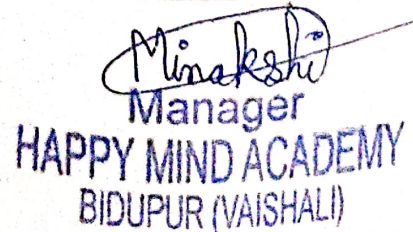 Minakshi
Manager
HAPPY MIND ACADEMY
BIDUPUR (VAISHALI)